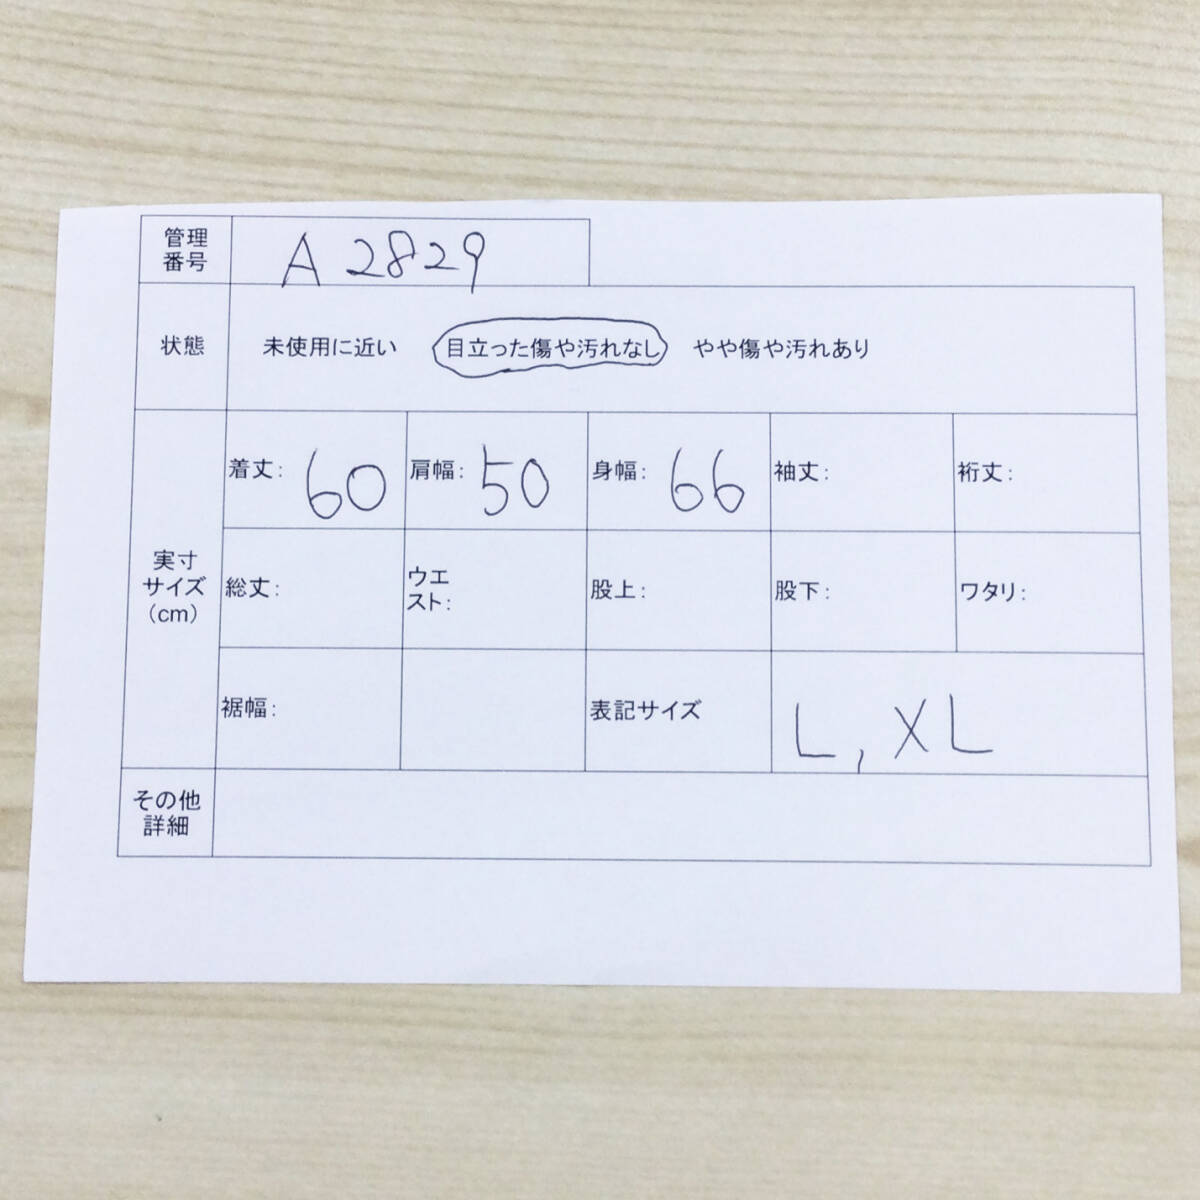 管理
番号
A 2829
状態
未使用に近い 目立った傷や汚れなし やや傷や汚れあり
実寸
サイズ
(cm)
着丈: 60
肩幅: 50
身幅: 66
袖丈:
裄丈:
総丈:
ウエ
スト:
股上:
股下:
ワタリ:
裾幅:
表記サイズ
L, XL
その他
詳細